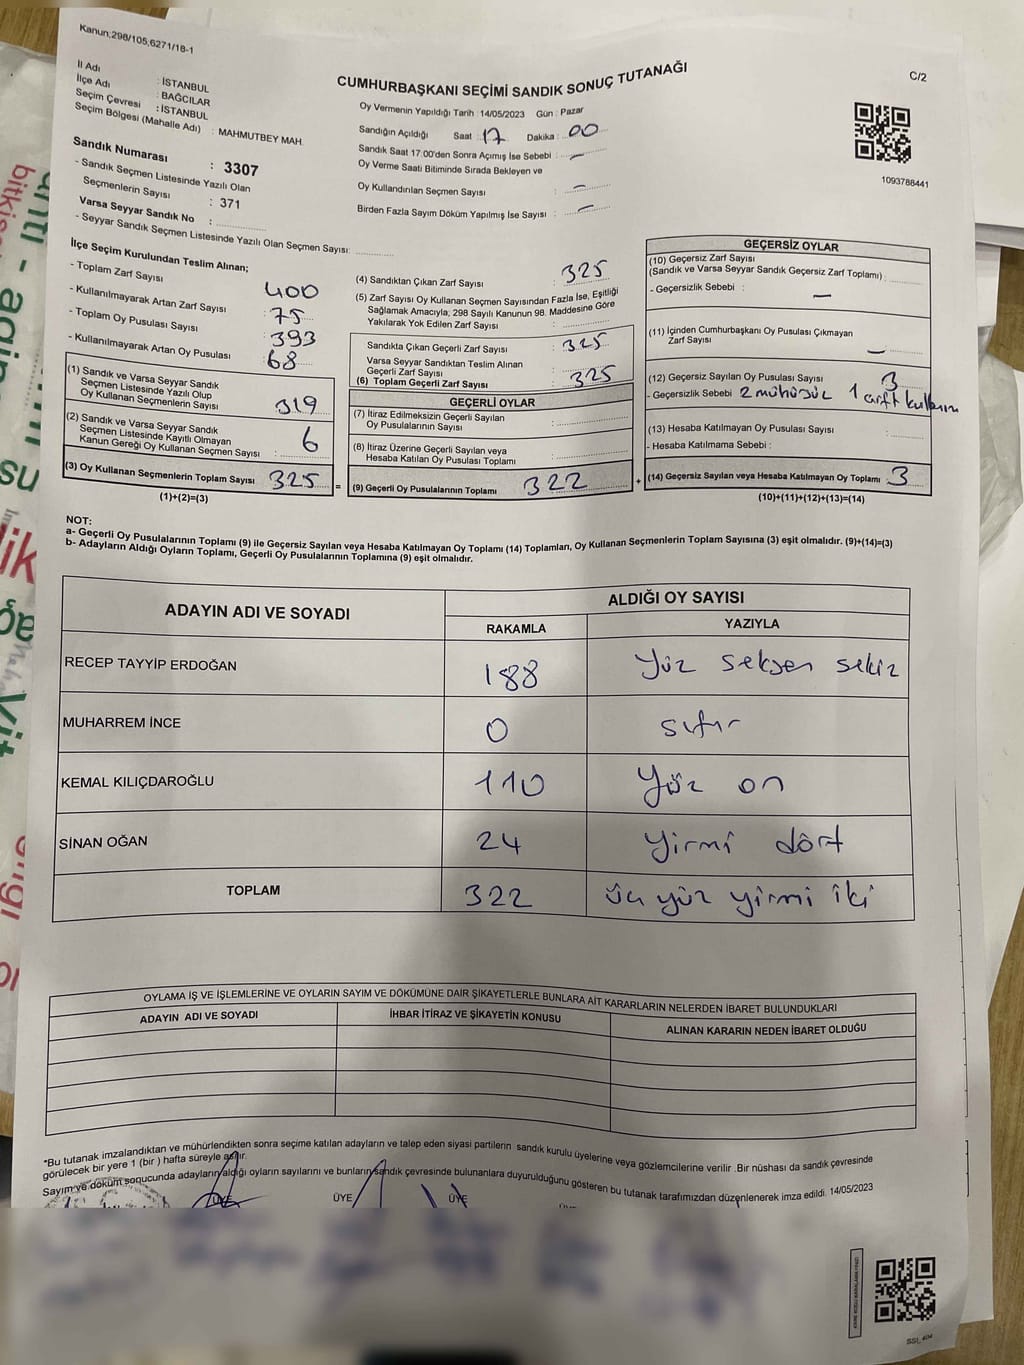 Kanun;298/105,6271/18-1
C/2
İl Adı : İSTANBUL
İlçe Adı : BAĞCILAR
Seçim Çevresi : İSTANBUL
Seçim Bölgesi (Mahalle Adı) : MAHMUTBEY MAH.
Sandık Numarası : 3307
- Sandık Seçmen Listesinde Yazılı Olan
Seçmenlerin Sayısı : 371
Varsa Seyyar Sandık No :
- Seyyar Sandık Seçmen Listesinde Yazılı Olan Seçmen Sayısı:
CUMHURBAŞKANI SEÇİMİ SANDIK SONUÇ TUTANAĞI
Oy Vermenin Yapıldığı Tarih : 14/05/2023 Gün : Pazar
Sandığın Açıldığı Saat : 17 Dakika : 00
Sandık Saat 17.00'den Sonra Açılmış İse Sebebi : —
Oy Verme Saati Bitiminde Sırada Bekleyen ve
Oy Kullandırılan Seçmen Sayısı : —
Birden Fazla Sayım Döküm Yapılmış İse Sayısı : —
1093788441
İlçe Seçim Kurulundan Teslim Alınan;
- Toplam Zarf Sayısı : 400
- Kullanılmayarak Artan Zarf Sayısı : 75
- Toplam Oy Pusulası Sayısı : 393
- Kullanılmayarak Artan Oy Pusulası : 68
(1) Sandık ve Varsa Seyyar Sandık
Seçmen Listesinde Yazılı Olup
Oy Kullanan Seçmenlerin Sayısı 319
(2) Sandık ve Varsa Seyyar Sandık
Seçmen Listesinde Kayıtlı Olmayan
Kanun Gereği Oy Kullanan Seçmen Sayısı : 6
(3) Oy Kullanan Seçmenlerin Toplam Sayısı 325 =
(1)+(2)=(3)
(4) Sandıktan Çıkan Zarf Sayısı : 325
(5) Zarf Sayısı Oy Kullanan Seçmen Sayısından Fazla İse, Eşitliği
Sağlamak Amacıyla; 298 Sayılı Kanunun 98. Maddesine Göre
Yakılarak Yok Edilen Zarf Sayısı :
Sandıkta Çıkan Geçerli Zarf Sayısı : 325
Varsa Seyyar Sandıktan Teslim Alınan
Geçerli Zarf Sayısı :
(6) Toplam Geçerli Zarf Sayısı : 325
GEÇERLİ OYLAR
(7) İtiraz Edilmeksizin Geçerli Sayılan
Oy Pusulalarının Sayısı :
(8) İtiraz Üzerine Geçerli Sayılan veya
Hesaba Katılan Oy Pusulası Toplamı :
(9) Geçerli Oy Pusulalarının Toplamı 322 +
GEÇERSİZ OYLAR
(10) Geçersiz Zarf Sayısı
(Sandık ve Varsa Seyyar Sandık Geçersiz Zarf Toplamı) :
- Geçersizlik Sebebi : —
(11) İçinden Cumhurbaşkanı Oy Pusulası Çıkmayan
Zarf Sayısı : —
(12) Geçersiz Sayılan Oy Pusulası Sayısı : 3
- Geçersizlik Sebebi 2 mühürsüz 1 çift kullanım
(13) Hesaba Katılmayan Oy Pusulası Sayısı :
- Hesaba Katılmama Sebebi :
(14) Geçersiz Sayılan veya Hesaba Katılmayan Oy Toplamı 3
(10)+(11)+(12)+(13)=(14)
NOT:
a- Geçerli Oy Pusulalarının Toplamı (9) ile Geçersiz Sayılan veya Hesaba Katılmayan Oy Toplamı (14) Toplamları, Oy Kullanan Seçmenlerin Toplam Sayısına (3) eşit olmalıdır. (9)+(14)=(3)
b- Adayların Aldığı Oyların Toplamı, Geçerli Oy Pusulalarının Toplamına (9) eşit olmalıdır.
ADAYIN ADI VE SOYADI ALDIĞI OY SAYISI
RAKAMLA YAZIYLA
RECEP TAYYİP ERDOĞAN 188 yüz seksen sekiz
MUHARREM İNCE 0 sıfır
KEMAL KILIÇDAROĞLU 110 yüz on
SİNAN OĞAN 24 yirmi dört
TOPLAM 322 üç yüz yirmi iki
OYLAMA İŞ VE İŞLEMLERİNE VE OYLARIN SAYIM VE DÖKÜMÜNE DAİR ŞİKAYETLERLE BUNLARA AİT KARARLARIN NELERDEN İBARET BULUNDUKLARI
ADAYIN ADI VE SOYADI İHBAR İTİRAZ VE ŞİKAYETİN KONUSU ALINAN KARARIN NEDEN İBARET OLDUĞU
*Bu tutanak imzalandıktan ve mühürlendikten sonra seçime katılan adayların ve talep eden siyasi partilerin sandık kurulu üyelerine veya gözlemcilerine verilir .Bir nüshası da sandık çevresinde
görülecek bir yere 1 (bir ) hafta süreyle asılır.
Sayım ve döküm sonucunda adayların aldığı oyların sayılarını ve bunların sandık çevresinde bulunanlara duyurulduğunu gösteren bu tutanak tarafımızdan düzenlenerek imza edildi. 14/05/2023
ÜYE ÜYE ÜYE